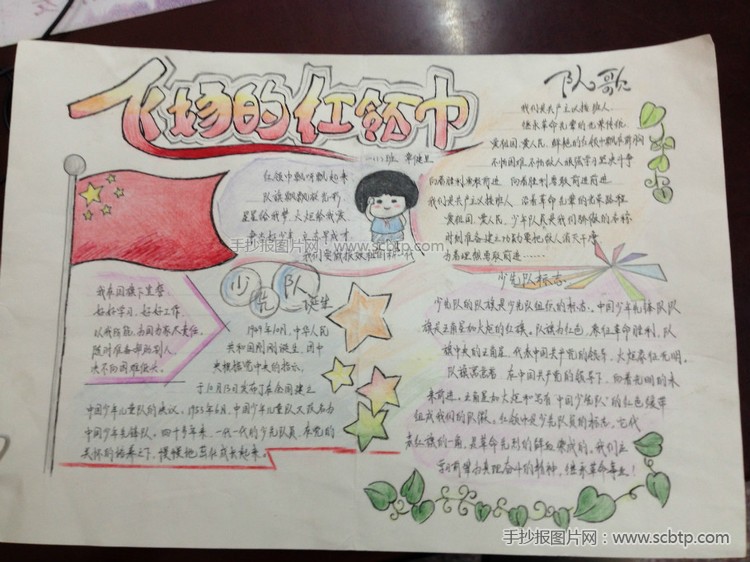 飞扬的红领巾
队歌
我们是共产主义接班人
继承革命先辈的光荣传统
爱祖国,爱人民,鲜艳的红领巾飘扬在前胸
不怕困难,不怕敌人,顽强学习坚决斗争
向着胜利勇敢前进 向着胜利勇敢前进前进
我们是共产主义接班人 沿着革命先辈的光荣路程
爱祖国,爱人民,少年队员是我们骄傲的名称
时刻准备,建立功勋要把敌人消灭干净
为着理想勇敢前进……
红领巾飘呀飘起来
队旗飘飘
星星给我梦,火炬给我爱
手抄报图片网:www.scbtp.com
少先队诞生
1949年10月,中华人民
共和国刚刚诞生,团中
央根据党中央的指示,
于10月13日发布了在全国建立
中国少年儿童队的决议。1953年6月,中国少年儿童队又改名为
中国少年先锋队。四十多年来,一代一代的少先队员,在党的
关怀的培养之下,慢慢地茁壮成长起来。
我在国旗下宣誓
好好学习,好好工作
随时准备帮助别人
决不向困难低头
少先队标志
少先队的队旗是少先队组织的标志。中国少年先锋队队
旗是五角星加火炬的红旗。队旗为红色,象征革命胜利,队
旗中央的五角星,代表中国共产党的领导,火炬象征光明。
队旗寓意着:在中国共产党的领导下,向着光明的未
来前进。五角星加火炬和写有“中国少先队”的红色绶带
组成我们的队徽。红领巾是少先队员的标志,它代
表红旗的一角,是革命先烈的鲜血染成的,我们应
学习前辈为真理奋斗的精神,继承革命事业!
手抄报图片网:www.scbtp.com